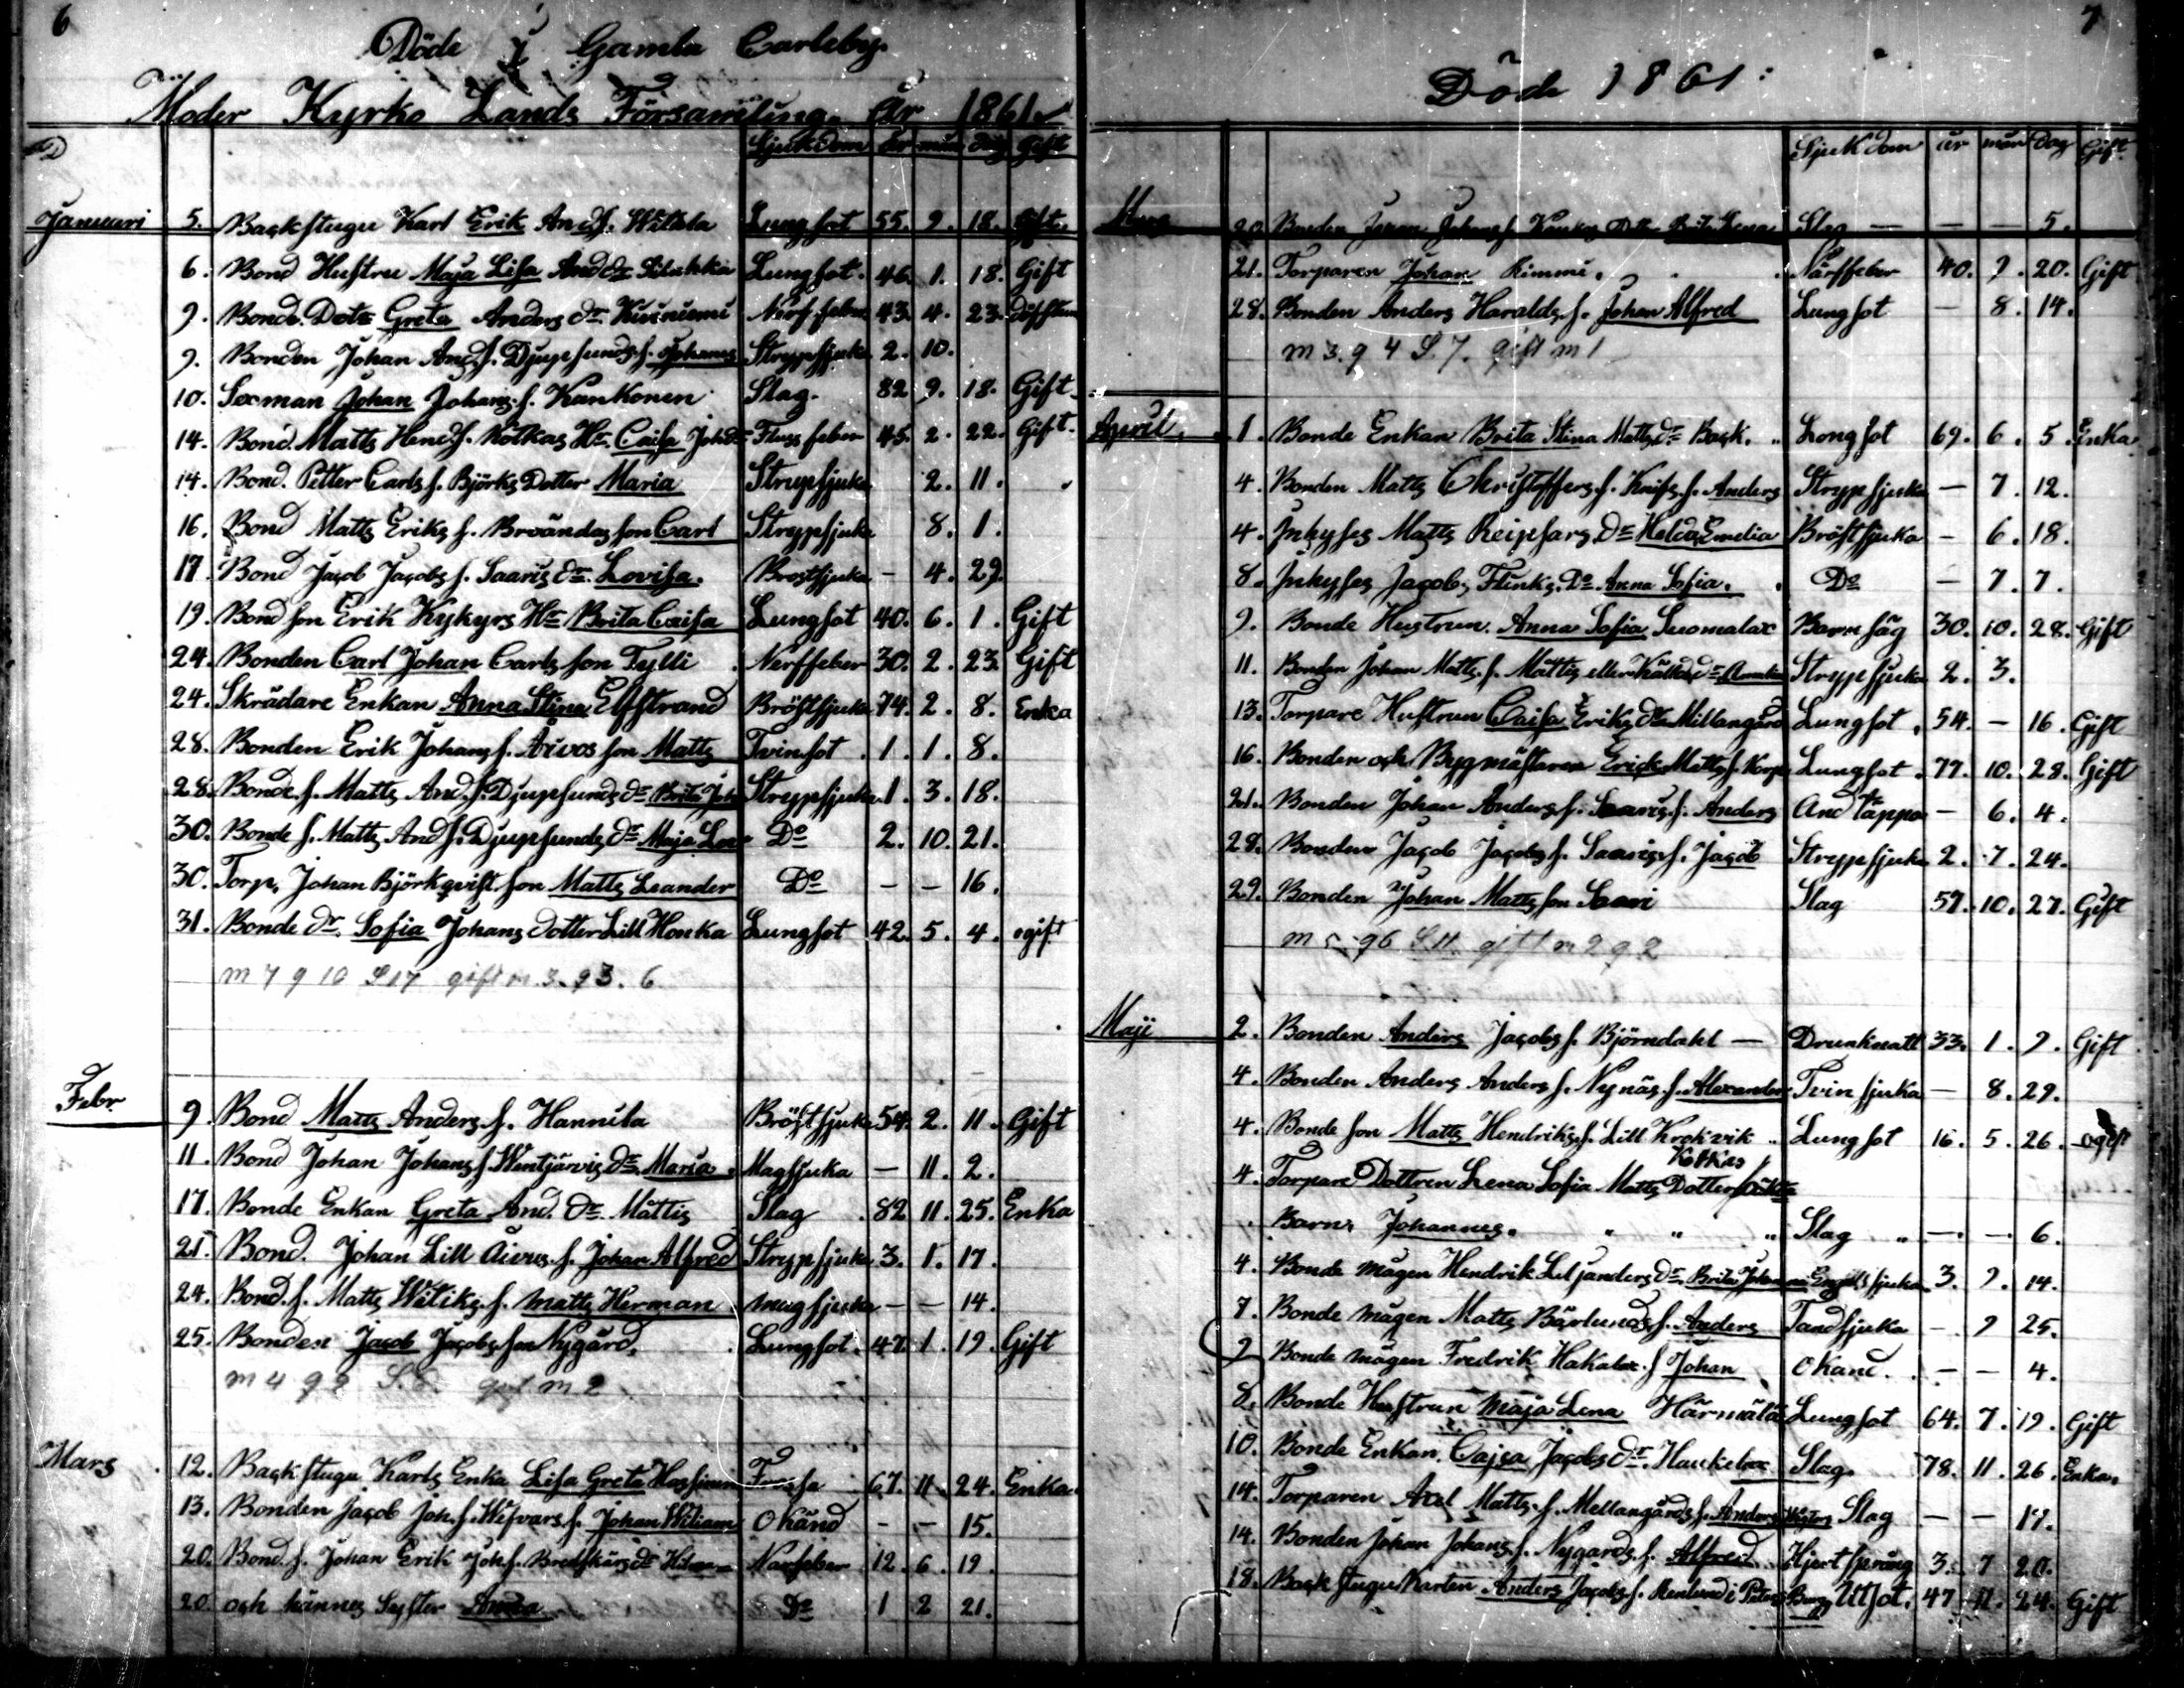 6
Döde i Gamla Carleby
Moder Kyrko Lands Församling. År 1861
D
Sjukdom år mån dag Gift
Januari 5. Backstugu Karl Erik And.s. Lungsot 55. 9. 18. Gift.
6. Bond Hustru Maja Lisa And dr Lungsot. 46. 1. 18. Gift
9. Bonde. Dotr Greta Anders dr Nerf feber 43. 4. 23.
9. Bonden Johan And.s. Djupsunds s. Johannes Strypsjuka 2. 10.
10. Sexman Johan Johans s. Kankonen Slag. 82 9. 18. Gift
14. Bond. Matts Hend.s. Kotkas Hu Caisa Joh dr Fluss feber 45. 2. 22. Gift.
14. Bond. Petter Carls s. Björks Dotter Maria Strypsjuka 2. 11.
16. Bond Matts Eriks s. Brändas son Carl Strypsjuka 8. 1.
17. Bond Jacob Jacobs s. Saaris dr. Lovisa. Brostsjuka - 4. 29.
19. Bond son Erik Kykyrs Hu Brita Caisa Lungsot 40. 6. 1. Gift
24. Bonden Carl Johan Carls son Tylli Nerffeber 30. 2. 23. Gift
24. Skrädare Enkan Anna Stina Elfstrand Bröstsjuka 74. 2. 8. Enka
28. Bonden Erik Johans s. Äivos son Matts Tvinsot 1. 1. 8.
28. Bonde s. Matts And. s. Djupsunds dr Brita Joh Strypsjuka 1. 3. 18.
30. Bonde s. Matts And s. Djupsunds dr Maja Do 2. 10. 21.
30. Torp. Johan Björkqvist son Matts Leander Do - - 16.
31. Bonde dr. Sofia Johans dotter Lill Honka Lungsot 42. 5. 4. ogift
m 7 q 10 S 17 gift m. 3. q 3. 6
Febr 9. Bond Matts Anders s. Hannila Bröstsjuka 54. 2. 11. Gift
11. Bond Johan Johans s. Wintjärvis dr. Maria Magsjuka - 11. 2.
17. Bonde Enkan Greta And. dr. Mattis Slag 82 11. 25. Enka
21. Bond. Johan Lill Äivus. s. Johan Alfred Strypsjuka 3. 1. 17.
24. Bond. s. Matts Witiks. s. Matts Herman magsjuka - - 14.
25. Bonden Jacob Jacobs son Nygård. Lungsot. 47. 1. 19. Gift
m 4 q 2 S. 6. gift m 2
Mars 12. Backstugu Karls Enka Lisa Greta 67. 11. 24. Enka
13. Bonden Jacob Joh. s. Wefvars s. Johan Wiliam Okänd - - 15.
20. Bond. s. Johan Erik Joh s. Bredskärs dr Hilma Narfeber 12. 6. 19.
20. och hännes Syster Anna Do 1 2 21.
7
Döde 1861:
Sjukdom år mån Dag Gift.
Mars 20. Bonden Johan Johans s. Kankos Dtr Brita Lena Slag - - 5.
21. Torparen Johan Rimmi. Närffeber 40. 9. 20. Gift
28. Bonden Anders Haralds. s. Johan Alfred Lungsot - 8. 14.
m 3. q 4 S. 7. gift m 1
April. 1. Bonde Enkan Brita Stina Matts dr Back. Longsot 69. 6. 5 Enka
4. Bonden Matts Christoffers. s. Knifs. s. Anders Strypsjuka - 7. 12.
4. Inhyses Matts Reipsars Dr Helda Emelia Bröstsjuka - 6. 18.
8. Inhyses Jacob Flinks. Dr. Anna Sofia. Do - 7. 7.
9. Bonde Hustrun. Anna Sofia Suomalax Barnsäg 30. 10. 28. Gift
11. Bonden Johan Matts. s. Mattis eller Kälkäs dr Amalia Strypsjuka 2. 3.
13. Torpare Hustrun Caisa Eriks dr Millangård Lungsot. 54. - 16. Gift
16. Bonden och Bygmästaren Erick Matts s. Korp Lungsot. 77. 10. 28. Gift
21. Bonden Johan Anders s. Saaris. s. Anders And täppa - 6. 4.
28. Bonden Jacob Jacobs s. Saaris s. Jacob Strypsjuka 2. 7. 24.
29. Bonden Johan Matts son Saari Slag 57. 10. 27. Gift
m 5 q 6 S 11 gift m 2 q. 2
Maji 2. Bonden Anders Jacobs s. Björndahl - Drunknatt 33. 1. 9. Gift
4. Bonden Anders Anders s. Nynäs. s. Alexander Tvinsjuka - 8. 29.
4. Bonde son Matts Hendriks. s. Lill Krokvik Lungsot 16. 5. 26. ogift
Kotkas
4. Torpare Dottren Lena Sofia Matts Dotter
Barn. Johannes. " " " Slag - - 6.
4. Bonde mågen Hendrik Liljanders dr. Brita Johanna Engelsksjuka 3. 9. 14.
7. Bonde mågen Matts Bärlunds s. Anders Tandsjuka - 9 25.
9 Bonde mågen Fredrik Hakalax. s Johan Okänd. - - 4.
8. Bonde Hustrun Maja Lena Härmälä Lungsot 64. 7. 19. Gift
10. Bonde Enkan. Cajsa Jacobs dr. Haukelax Slag. 78. 11. 26. Enka.
14. Torparen Axel Matts. s. Mellangårds s. Anders Victor Slag - - 14.
14. Bonden Johan Johans s. Nygårds s. Alfred Hjertsprång 3. 7 20.
18. Backstugu Karlen Anders Jacobs s. i Peters Burg Utsot. 47 11. 24. Gift